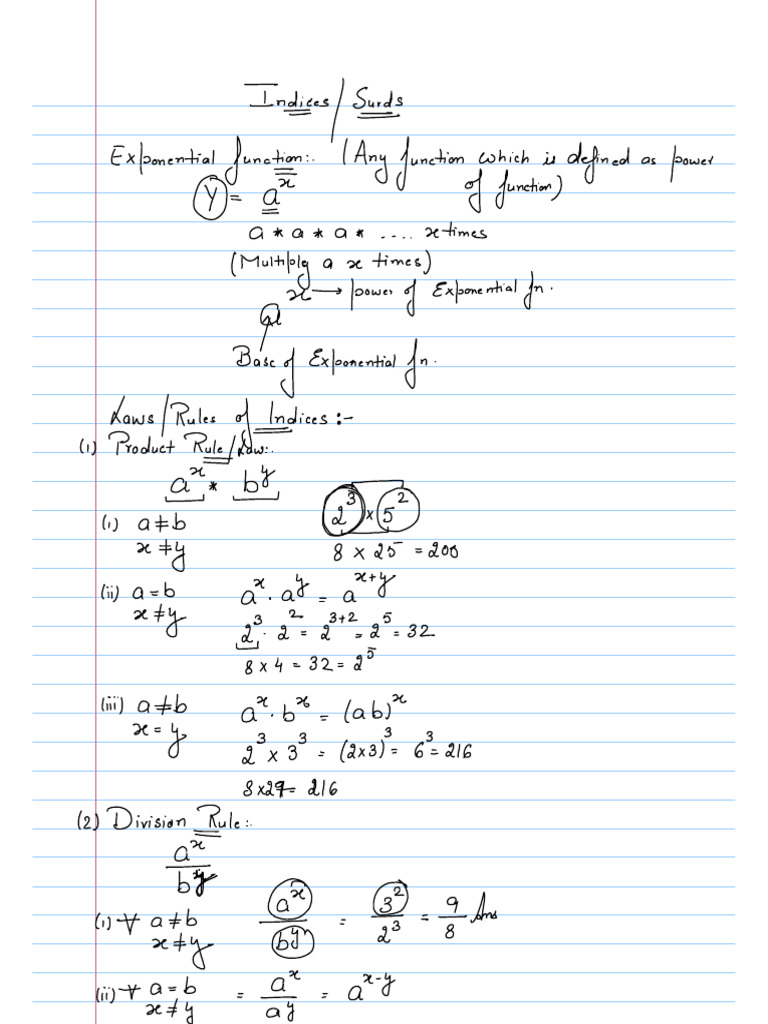 Indices/Surds
Exponential function:. (Any function which is defined as power
of function)
Y = a^x
a * a * a * .... x times
(Multiply a x times)
x → power of Exponential fn.
a
Base of Exponential fn.
Laws/Rules of Indices :-
(1) Product Rule/Law:.
a^x * b^y
(i) a≠b 2^3 x 5^2
x≠y 8 x 25 = 200
(ii) a=b a^x . a^y = a^x+y
x≠y 2^3 . 2^2 = 2^3+2 = 2^5 = 32
8 x 4 = 32 = 2^5
(iii) a≠b a^x . b^x = (ab)^x
x=y 2^3 x 3^3 = (2x3)^3 = 6^3 = 216
8x27= 216
(2) Division Rule:.
a^x/b^y
(i) ∀ a≠b a^x/b^y = 3^2/2^3 = 9/8 Ans
x≠y
(ii) ∀ a=b = a^x/a^y = a^x-y
x≠y